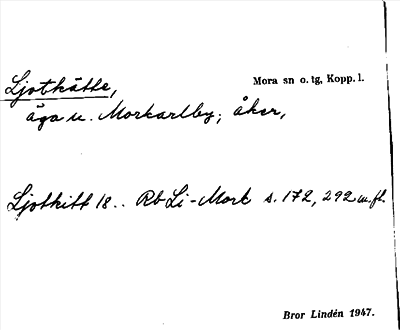 Ljotkätte,
Mora sn o. tg, Kopp. l.
äga u. Morkarlby; åker,
Ljotkitt 18.. Rb Li-Mork s. 172, 292 m. fl.
Bror Lindén 1947.